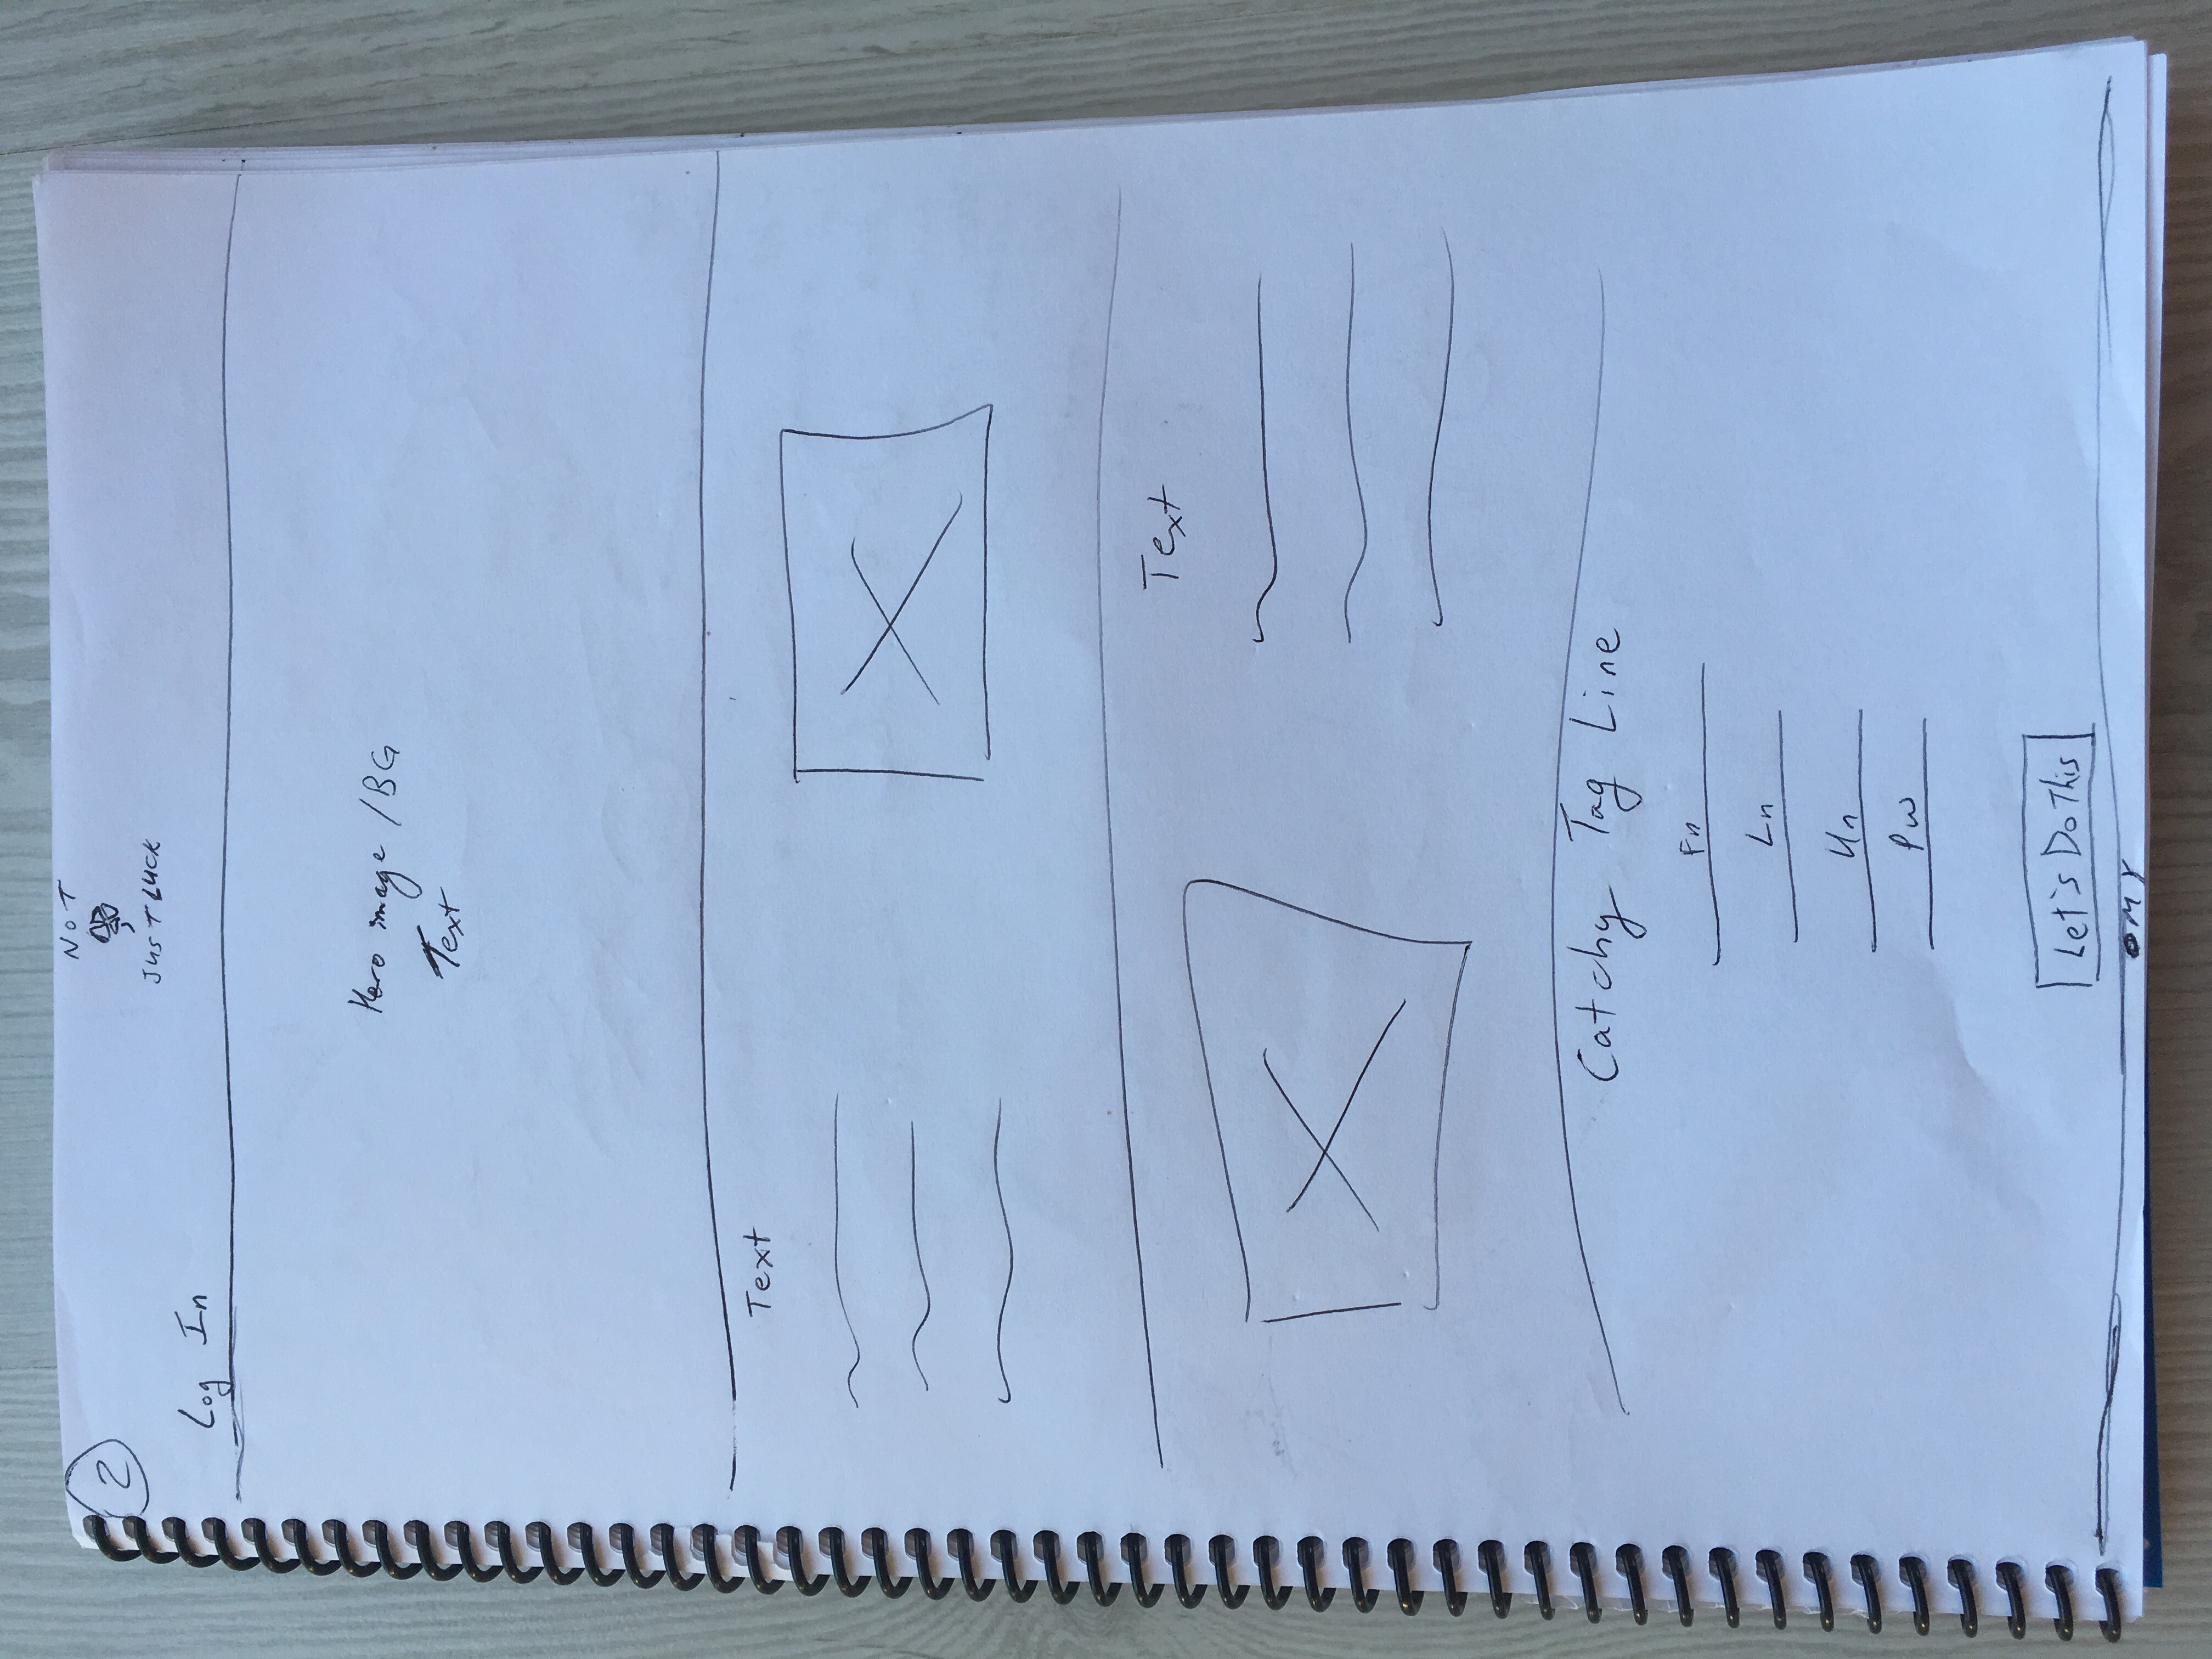 2
NOT
JUST LUCK
Log In
Hero image / BG
Text
Text
Text
Catchy Tag Line
Fn
Ln
Un
Pw
Let's Do This